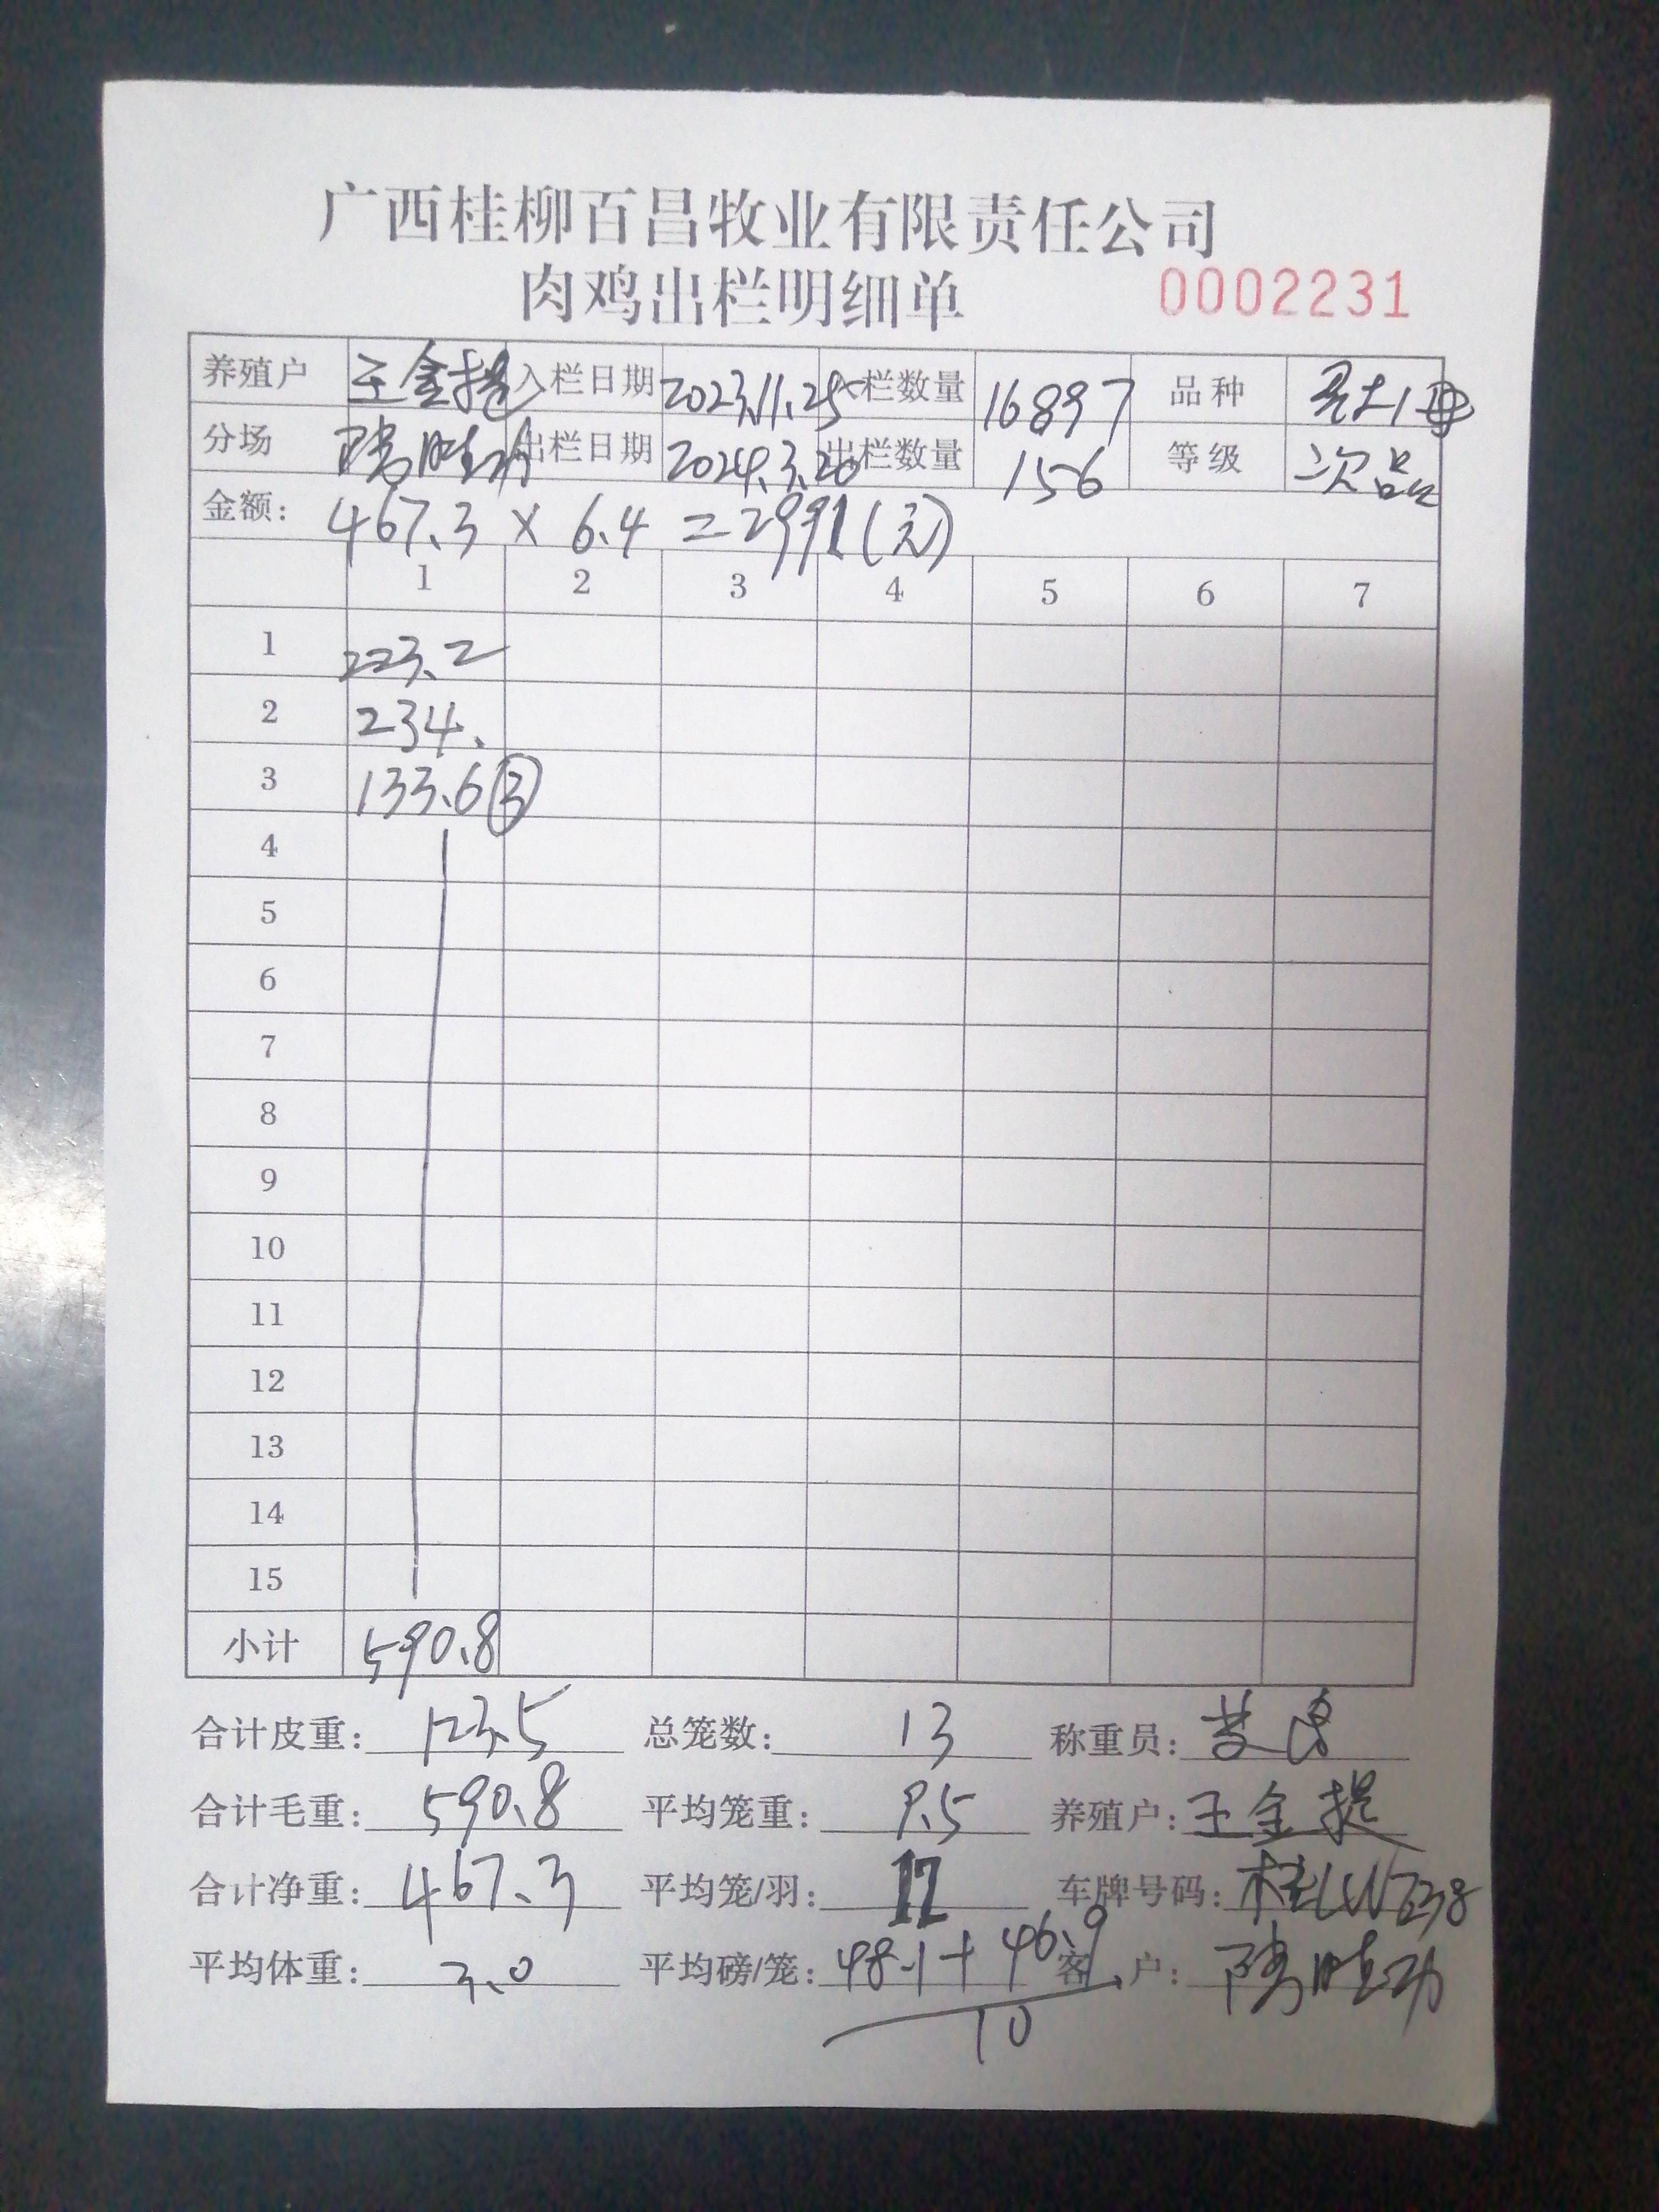 广西桂柳百昌牧业有限责任公司
肉鸡出栏明细单 0002231
养殖户 王金提 入栏日期 2023.11.25 栏数量 16897 品种
分场 陈胜功 出栏日期 2024.3.20 出栏数量 156 等级 次品
金额: 467.3 × 6.4 = 2991 (元)
1 2 3 4 5 6 7
1 223.2
2 234.
3 133.6 ③
4
5
6
7
8
9
10
11
12
13
14
15
小计 590.8
合计皮重: 123.5 总笼数: 13 称重员:
合计毛重: 590.8 平均笼重: 9.5 养殖户: 王金提
合计净重: 467.3 平均笼/羽: 12 车牌号码:
平均体重: 3.0 平均磅/笼: 48.1 + 46.9 客 户: 陈胜功
10